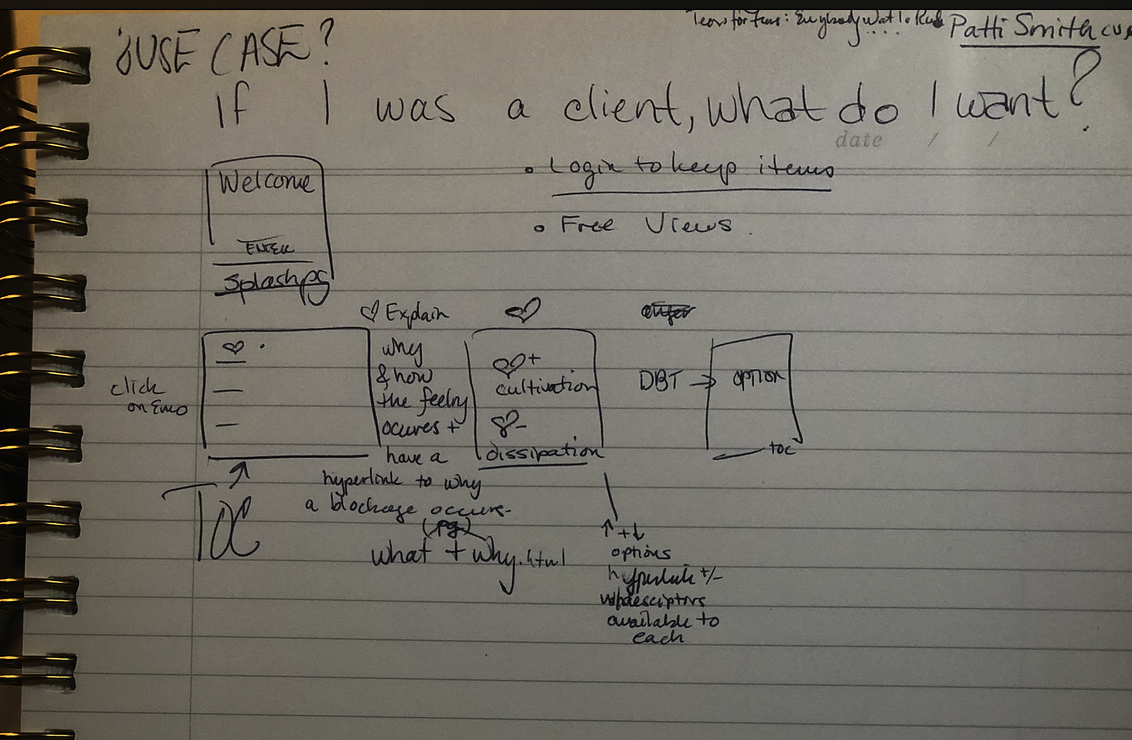 Tears for Fears: Everybody Wants to Rule....
Patti Smith
USE CASE?
If I was a client, what do I want?
date / /
• Login to keep items
• Free Views.
Welcome
ENTER
Splash pg
♡ Explain
why
& how
the feeling
occures +
have a
hyperlink to why
a blockage occurs-
(pg)
what + why.html
♡ .
click
on Emo
TOC
♡
♡+
cultivation
♡-
dissipation
DBT → option
toc
↑ + ↓
options
hyperlink +/-
descriptors
available to
each